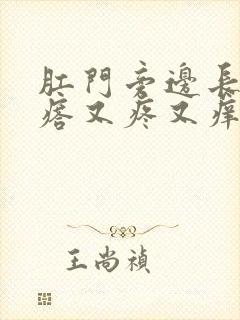 肛門旁邊長
痞又疼又痒
王尚禎